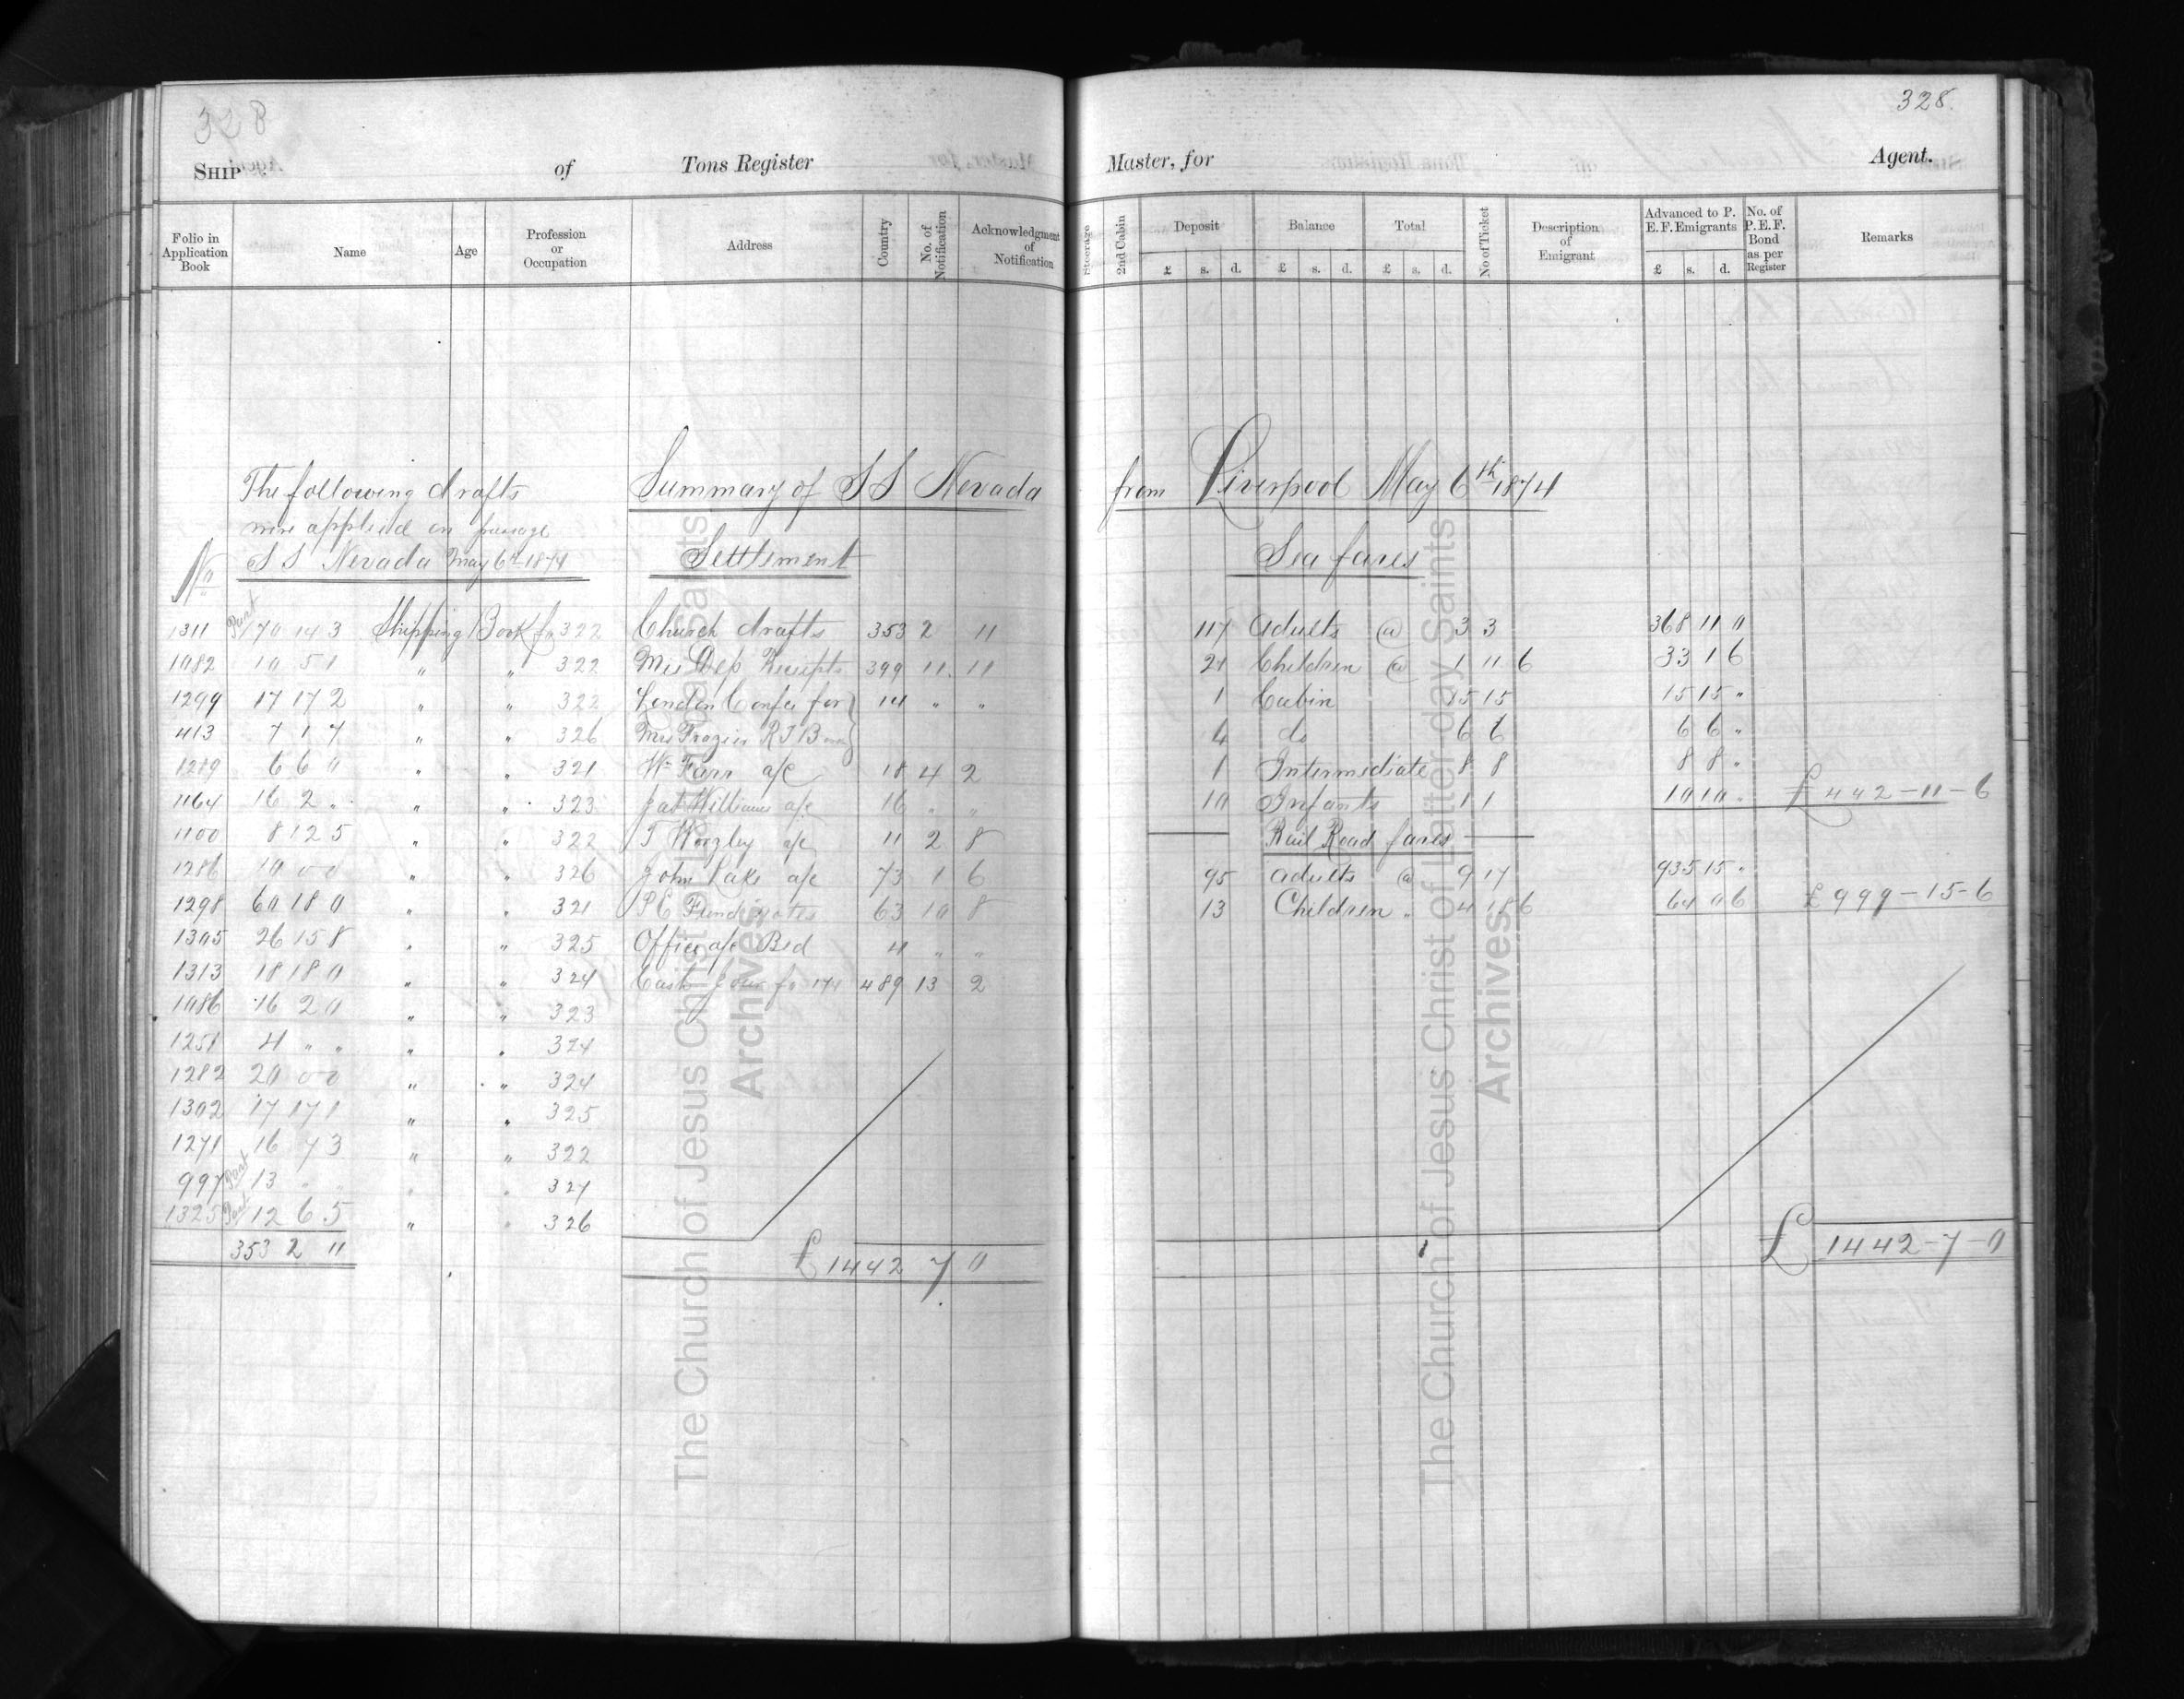 328
328.
SHIP of Tons Register Master, for Agent.
Folio in Application Book Name Age Profession or Occupation Address Country No. of Notification Acknowledgment of Notification Steerage 2nd Cabin Deposit £ s. d. Balance £ s. d. Total £ s. d. No of Ticket Description of Emigrant Advanced to P. E. F. Emigrants £ s. d. No. of P.E.F. Bond as per Register Remarks
The following drafts
were applied on passage
SS Nevada May 6th 1874
No
1311 Part 70 14 3 Shipping Book fo 322
1082 10 5 1 " " 322
1299 17 17 2 " " 322
413 7 1 7 " " 326
1289 6 6 0 " " 321
1164 16 2 " " " 323
1100 8 12 5 " " 322
1286 10 0 0 " " 326
1298 60 18 0 " " 321
1305 26 15 8 " " 325
1313 18 18 0 " " 324
1086 16 2 0 " " 323
1251 4 " " " " 324
1282 20 0 0 " " 324
1302 17 17 1 " " 325
1271 16 7 3 " " 322
997 Part 13 " " " " 327
1325 Part 12 6 5 " " 326
353 2 11
Summary of SS Nevada from Liverpool May 6th 1874
Settlement
Church drafts 353 2 11
Dep Receipts 399 11 11
London Confce for 14 " "
Mrs Frazier R T B
Wm Farr a/c 18 4 2
Williams a/c 16 " "
T Worgley a/c 11 2 8
John Lake a/c 73 1 6
P E Fund 63 10 8
Office a/c Bed 4 " "
Cash Jour fo 174 489 13 2
£ 1442 7 0
Sea fares
117 Adults @ 3 3 368 11 0
21 Children @ 1 11 6 33 1 6
1 Cabin 15 15 15 15 "
do 6 6 6 6 "
1 Intermediate 8 8 8 8 "
10 Infants 1 1 10 10 " £442-11-6
Rail Road fares
95 adults @ 9 17 935 15 "
13 Children " 4 18 6 64 0 6 £999-15-6
£ 1442-7-0
The Church of Jesus Christ of Latter-day Saints
Archives
The Church of Jesus Christ of Latter-day Saints
Archives